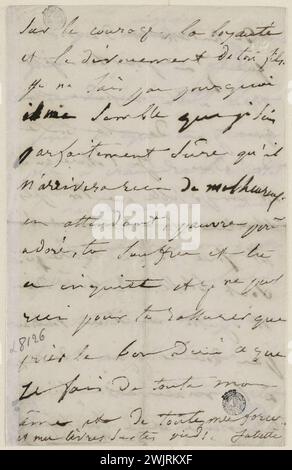 sur le courage, la loyauté
et le dévouement de ton fils.
Je ne sais pas pourquoi
il me semble que je suis
parfaitement sûre qu'il
n'arrivera rien de malheureux
en attendant, pauvre père
adoré, tu souffres et tu
es inquiet et je ne puis
rien pour te rassurer que
prier le bon Dieu ce que
je fais de toute mon
âme et de toutes mes forces
et mes lèvres sur tes pieds. Juliette
28126
alamy
Image ID: 2WJRKXF
www.alamy.com